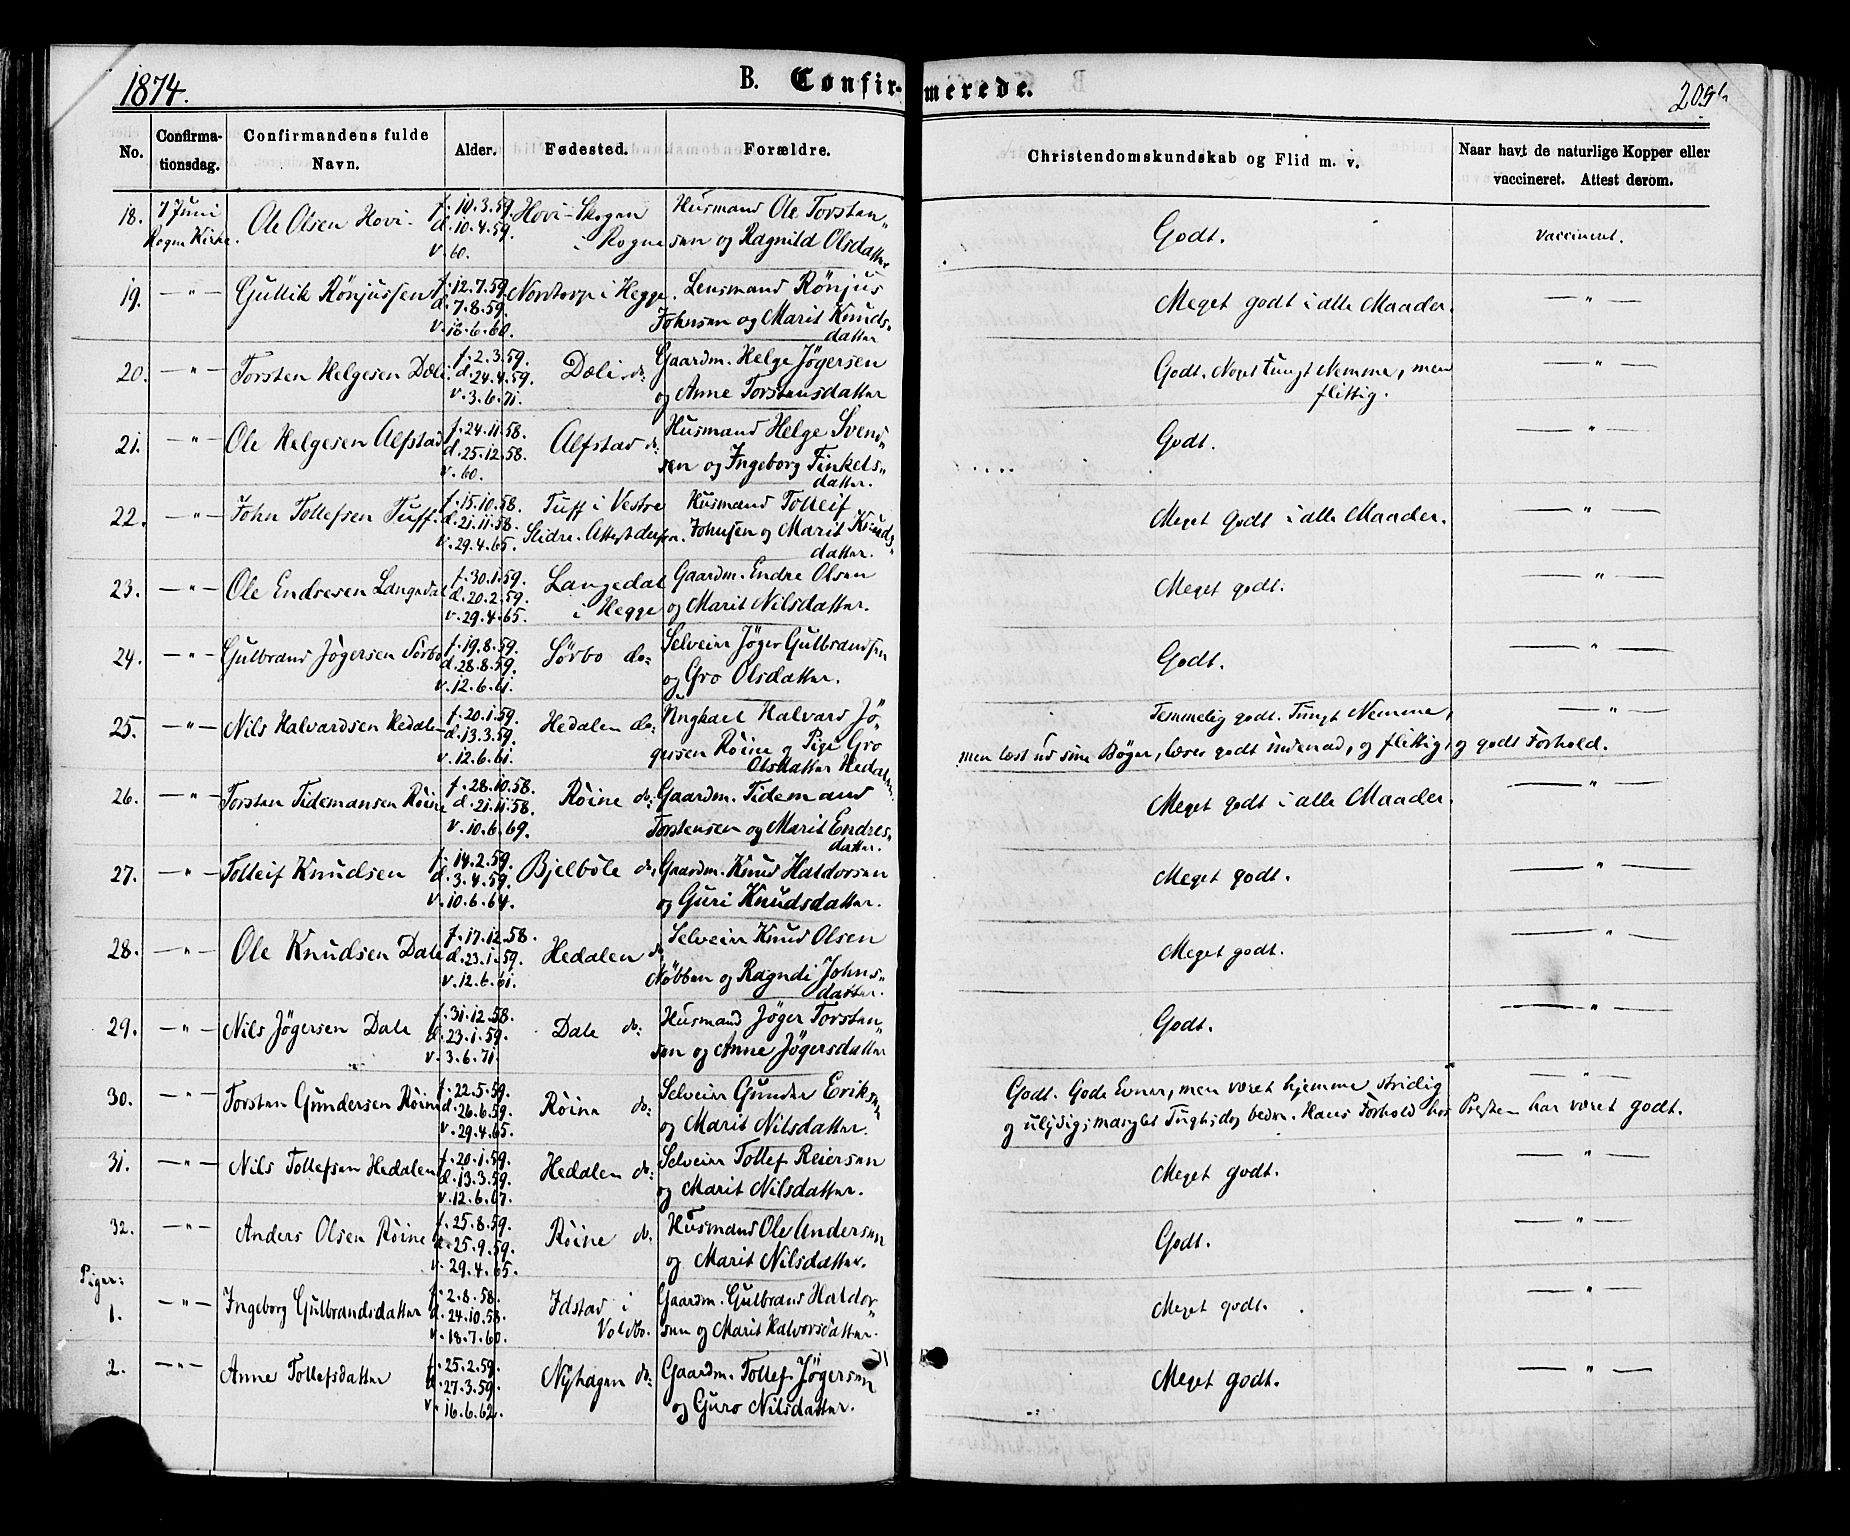 1874.
B. Confirmerede.
205
No.
Confirmationsdag.
Confirmandens fulde Navn.
Alder.
Fødested.
Forældre.
Christendomskundskab og Flid m. v.
Naar havt de naturlige Kopper eller vaccineret. Attest derom.
18. 7 Juni Ole Olsen Hovi f. 10.3.59. Hovi-Skogen Husmand Ole Torsten„ Godt. vaccineret.
Rogne Kirke. d. 10.4.59. i Rogne sen og Ragnild Olsdatter
v. 60.
19. —"— Gullik Rönjussen f. 12.7.59. Nordtorp i Hegge. Lensmand Rönjus Meget godt i alle Maader. —"—
d. 7.8.59. Johnsen og Marit Knuds„
v. 16.6.60. datter
20. —"— Torsten Helgesen Dæli f. 2.3.59. Dæli do: Gaardm. Helge Jögersen Godt. Noget tungt Nemme, men —"—
d. 24.4.59. og Anne Torstensdatter flittig.
v. 3.6.71.
21. —"— Ole Helgesen Alfstad f. 24.11.58. Alfstad do: Husmand Helge Svend„ Godt. —"—
d. 25.12.58. sen og Ingeborg Finkels„
v. 60. datter.
22. —"— John Tollefsen Tuff. f. 15.10.58. Tuff i Vestre Husmand Tolleif Meget godt i alle Maader. —"—
d. 21.11.58. Slidre. Johnsen og Marit Knuds„
v. 29.4.65. datter.
23. —"— Ole Endresen Langedal f. 30.1.59. Langedal Gaardm. Endre Olsen Meget godt. —"—
d. 20.2.59. i Hegge og Marit Nilsdatter.
v. 29.4.65.
24. —"— Gulbrand Jögersen Sörbo f. 19.8.59. Sörbo do: Selveier Jöger Gulbrandsen Godt. —"—
d. 28.8.59. og Gro Olsdatter.
v. 12.6.61.
25. —"— Nils Halvardsen Hedalen f. 20.1.59. Hedalen do: Ungkarl Halvard Jö„ Temmelig godt. Tungt Nemme, —"—
d. 13.3.59. gersen Röine og Pige Gro men læst ud sine Böger, læser godt indenad, og flittig, og godt Forhold.
v. 12.6.61. Olsdatter Hedalen.
26. —"— Torsten Tidemansen Röine f. 28.10.58. Röine do: Gaardm. Tidemand Meget godt i alle Maader. —"—
d. 21.11.58. Torstensen og Marit Endres„
v. 10.6.69. datter.
27. —"— Tolleif Knudsen f. 14.2.59. Bjelböle do: Gaardm. Knud Haldorsen Meget godt. —"—
d. 3.4.59. og Guri Knudsdatter.
v. 10.6.64.
28. —"— Ole Knudsen Dale f. 17.12.58. Hedalen do Selveier Knud Olsen Meget godt. —"—
d. 23.1.59. Nöbben og Ragndi Johns„
v. 12.6.61. datter.
29. —"— Nils Jögersen Dale f. 31.12.58. Dale do: Husmand Jöger Torsten„ Godt. —"—
d. 23.1.59. sen og Anne Jögersdatter
v. 3.6.71.
30. —"— Torsten Gundersen Röine f. 22.5.59. Röine do: Selveier Gunder Eriksen Godt. Gode Evner, men været hjemme stridig —"—
d. 26.6.59. og Marit Nilsdatter. og ulydig; manglet Tugt; dog bedre. Hans Forhold hos Presten har været godt.
v. 29.4.65.
31. —"— Nils Tollefsen Hedalen f. 20.1.59. Hedalen do: Selveier Tollef Reiersen Meget godt. —"—
d. 13.3.59. og Marit Nilsdatter.
v. 12.6.67.
32. —"— Anders Olsen Röine f. 25.8.59. Röine do. Husmand Ole Andersen Godt. —"—
d. 25.9.59. og Marit Nilsdatter.
v. 29.4.65.
Piger:
1. —"— Ingeborg Gulbrandsdatter f. 2.8.58. Idstad i Gaardm. Gulbrand Haldor„ Meget godt. —"—
d. 24.10.58. Voldbo. sen og Marit Halvorsdatter.
v. 18.7.60.
2. —"— Anne Tollefsdatter f. 25.2.59. Nyhagen do: Gaardm. Tollef Jögersen Meget godt. —"—
d. 27.3.59. og Guro Nilsdatter.
v. 16.6.62.